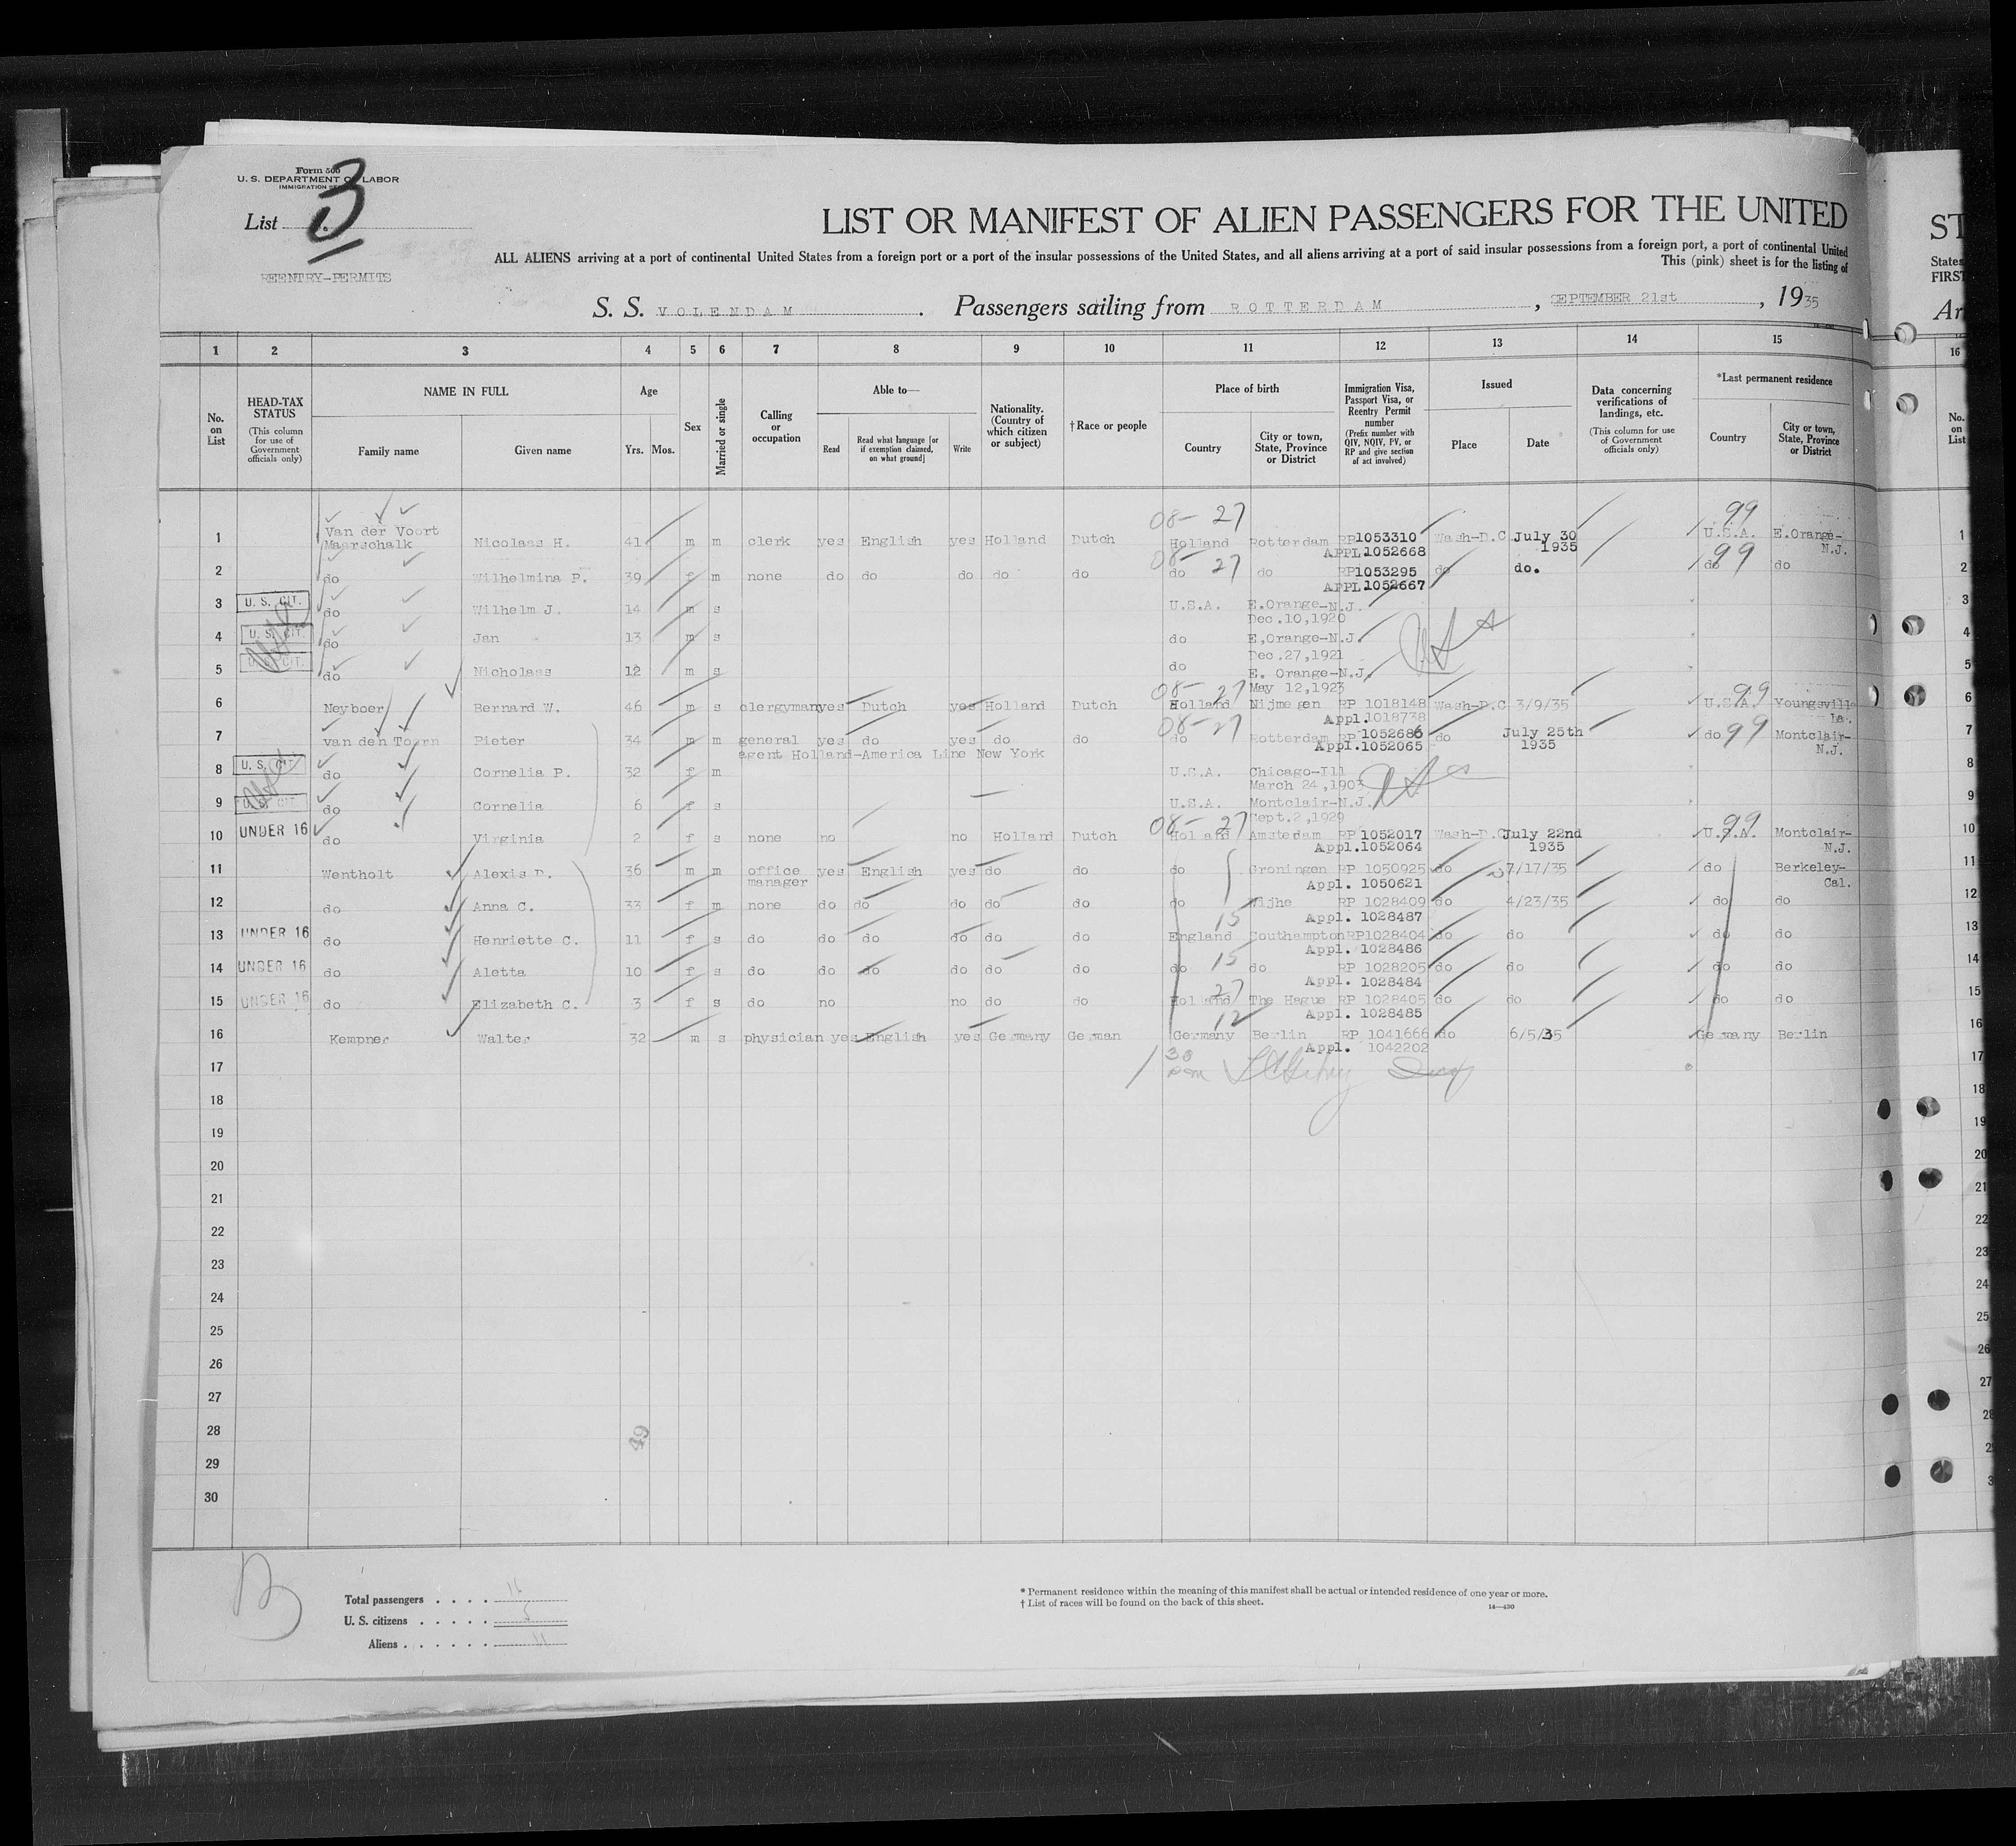 Form 500
U. S. DEPARTMENT OF LABOR
IMMIGRATION
List 3
REENTRY-PERMITS
LIST OR MANIFEST OF ALIEN PASSENGERS FOR THE UNITED
ST
ALL ALIENS arriving at a port of continental United States from a foreign port or a port of the insular possessions of the United States, and all aliens arriving at a port of said insular possessions from a foreign port, a port of continental United
States
This (pink) sheet is for the listing of
FIRST
S. S. VOLENDAM. Passengers sailing from ROTTERDAM, SEPTEMBER 21st, 1935
Ar
1 2 3 4 5 6 7 8 9 10 11 12 13 14 15 16
No. on List
HEAD-TAX STATUS (This column for use of Government officials only)
NAME IN FULL
Family name Given name
Age
Yrs. Mos.
Sex
Married or single
Calling or occupation
Able to—
Read
Read what language [or if exemption claimed, on what ground]
Write
Nationality. (Country of which citizen or subject)
† Race or people
Place of birth
Country
City or town, State, Province or District
Immigration Visa, Passport Visa, or Reentry Permit number (Prefix number with QIV, NQIV, PV, or RP and give section of act involved)
Issued
Place Date
Data concerning verifications of landings, etc. (This column for use of Government officials only)
*Last permanent residence
Country
City or town, State, Province or District
No. on List
08- 27 99
1 Van der Voort Maarschalk Nicolaas H. 41 m m clerk yes English yes Holland Dutch Holland Rotterdam RP1053310 Wash-D.C July 30 1935 U.S.A. E.Orange-N.J. 1
APPL.1052668
08- 27 99
2 do Wilhelmina P. 39 f m none do do do do do do do RP1053295 do do. do do 2
APPL.1052667
3 U. S. CIT. do Wilhelm J. 14 m s U.S.A. E.Orange-N.J. 3
Dec.10,1920
4 U. S. CIT. do Jan 13 m s do E,Orange-N.J. 4
Dec.27,1921
5 U. S. CIT. do Nicholaas 12 m s do E. Orange-N.J. 5
May 12,1923
08- 27 99
6 Neyboer Bernard W. 46 m s clergyman yes Dutch yes Holland Dutch Holland Nijmegen RP 1018148 Wash-D.C 3/9/35 U.S.A. Youngsville La. 6
Appl.1018738
08- 27 99
7 van den Toorn Pieter 34 m m general yes do yes do do do Rotterdam RP 1052686 do July 25th 1935 do Montclair-N.J. 7
agent Holland-America Line New York Appl.1052065
8 U. S. CIT. do Cornelia P. 32 f m U.S.A. Chicago-Ill 8
March 24,1903
9 U. S. CIT. do Cornelia 6 f s U.S.A. Montclair-N.J. 9
Sept.2,1929
08- 27 99
10 UNDER 16 do Virginia 2 f s none no no Holland Dutch Holland Amsterdam RP 1052017 Wash-D.C July 22nd 1935 U.S.A. Montclair-N.J. 10
Appl.1052064
11 Wentholt Alexis D. 36 m m office manager yes English yes do do do Groningen RP 1050925 do 7/17/35 do Berkeley-Cal. 11
Appl. 1050621
12 do Anna C. 33 f m none do do do do do do Wijhe RP 1028409 do 4/23/35 do do 12
15 Appl. 1028487
13 UNDER 16 do Henriette C. 11 f s do do do do do do England Southampton RP1028404 do do do do 13
15 Appl. 1028486
14 UNDER 16 do Aletta 10 f s do do do do do do do do RP 1028205 do do do do 14
27 Appl. 1028484
15 UNDER 16 do Elizabeth C. 3 f s do no no do do Holland The Hague RP 1028405 do do do do 15
12 Appl. 1028485
16 Kempner Walter 32 m s physician yes English yes Germany German Germany Berlin RP 1041666 do 6/5/35 Germany Berlin 16
Appl. 1042202
17 30 17
18 18
19 19
20 20
21 21
22 22
23 23
24 24
25 25
26 26
27 27
28 49
29
30
B
Total passengers 16
U. S. citizens 5
Aliens 11
* Permanent residence within the meaning of this manifest shall be actual or intended residence of one year or more.
† List of races will be found on the back of this sheet.
14—430